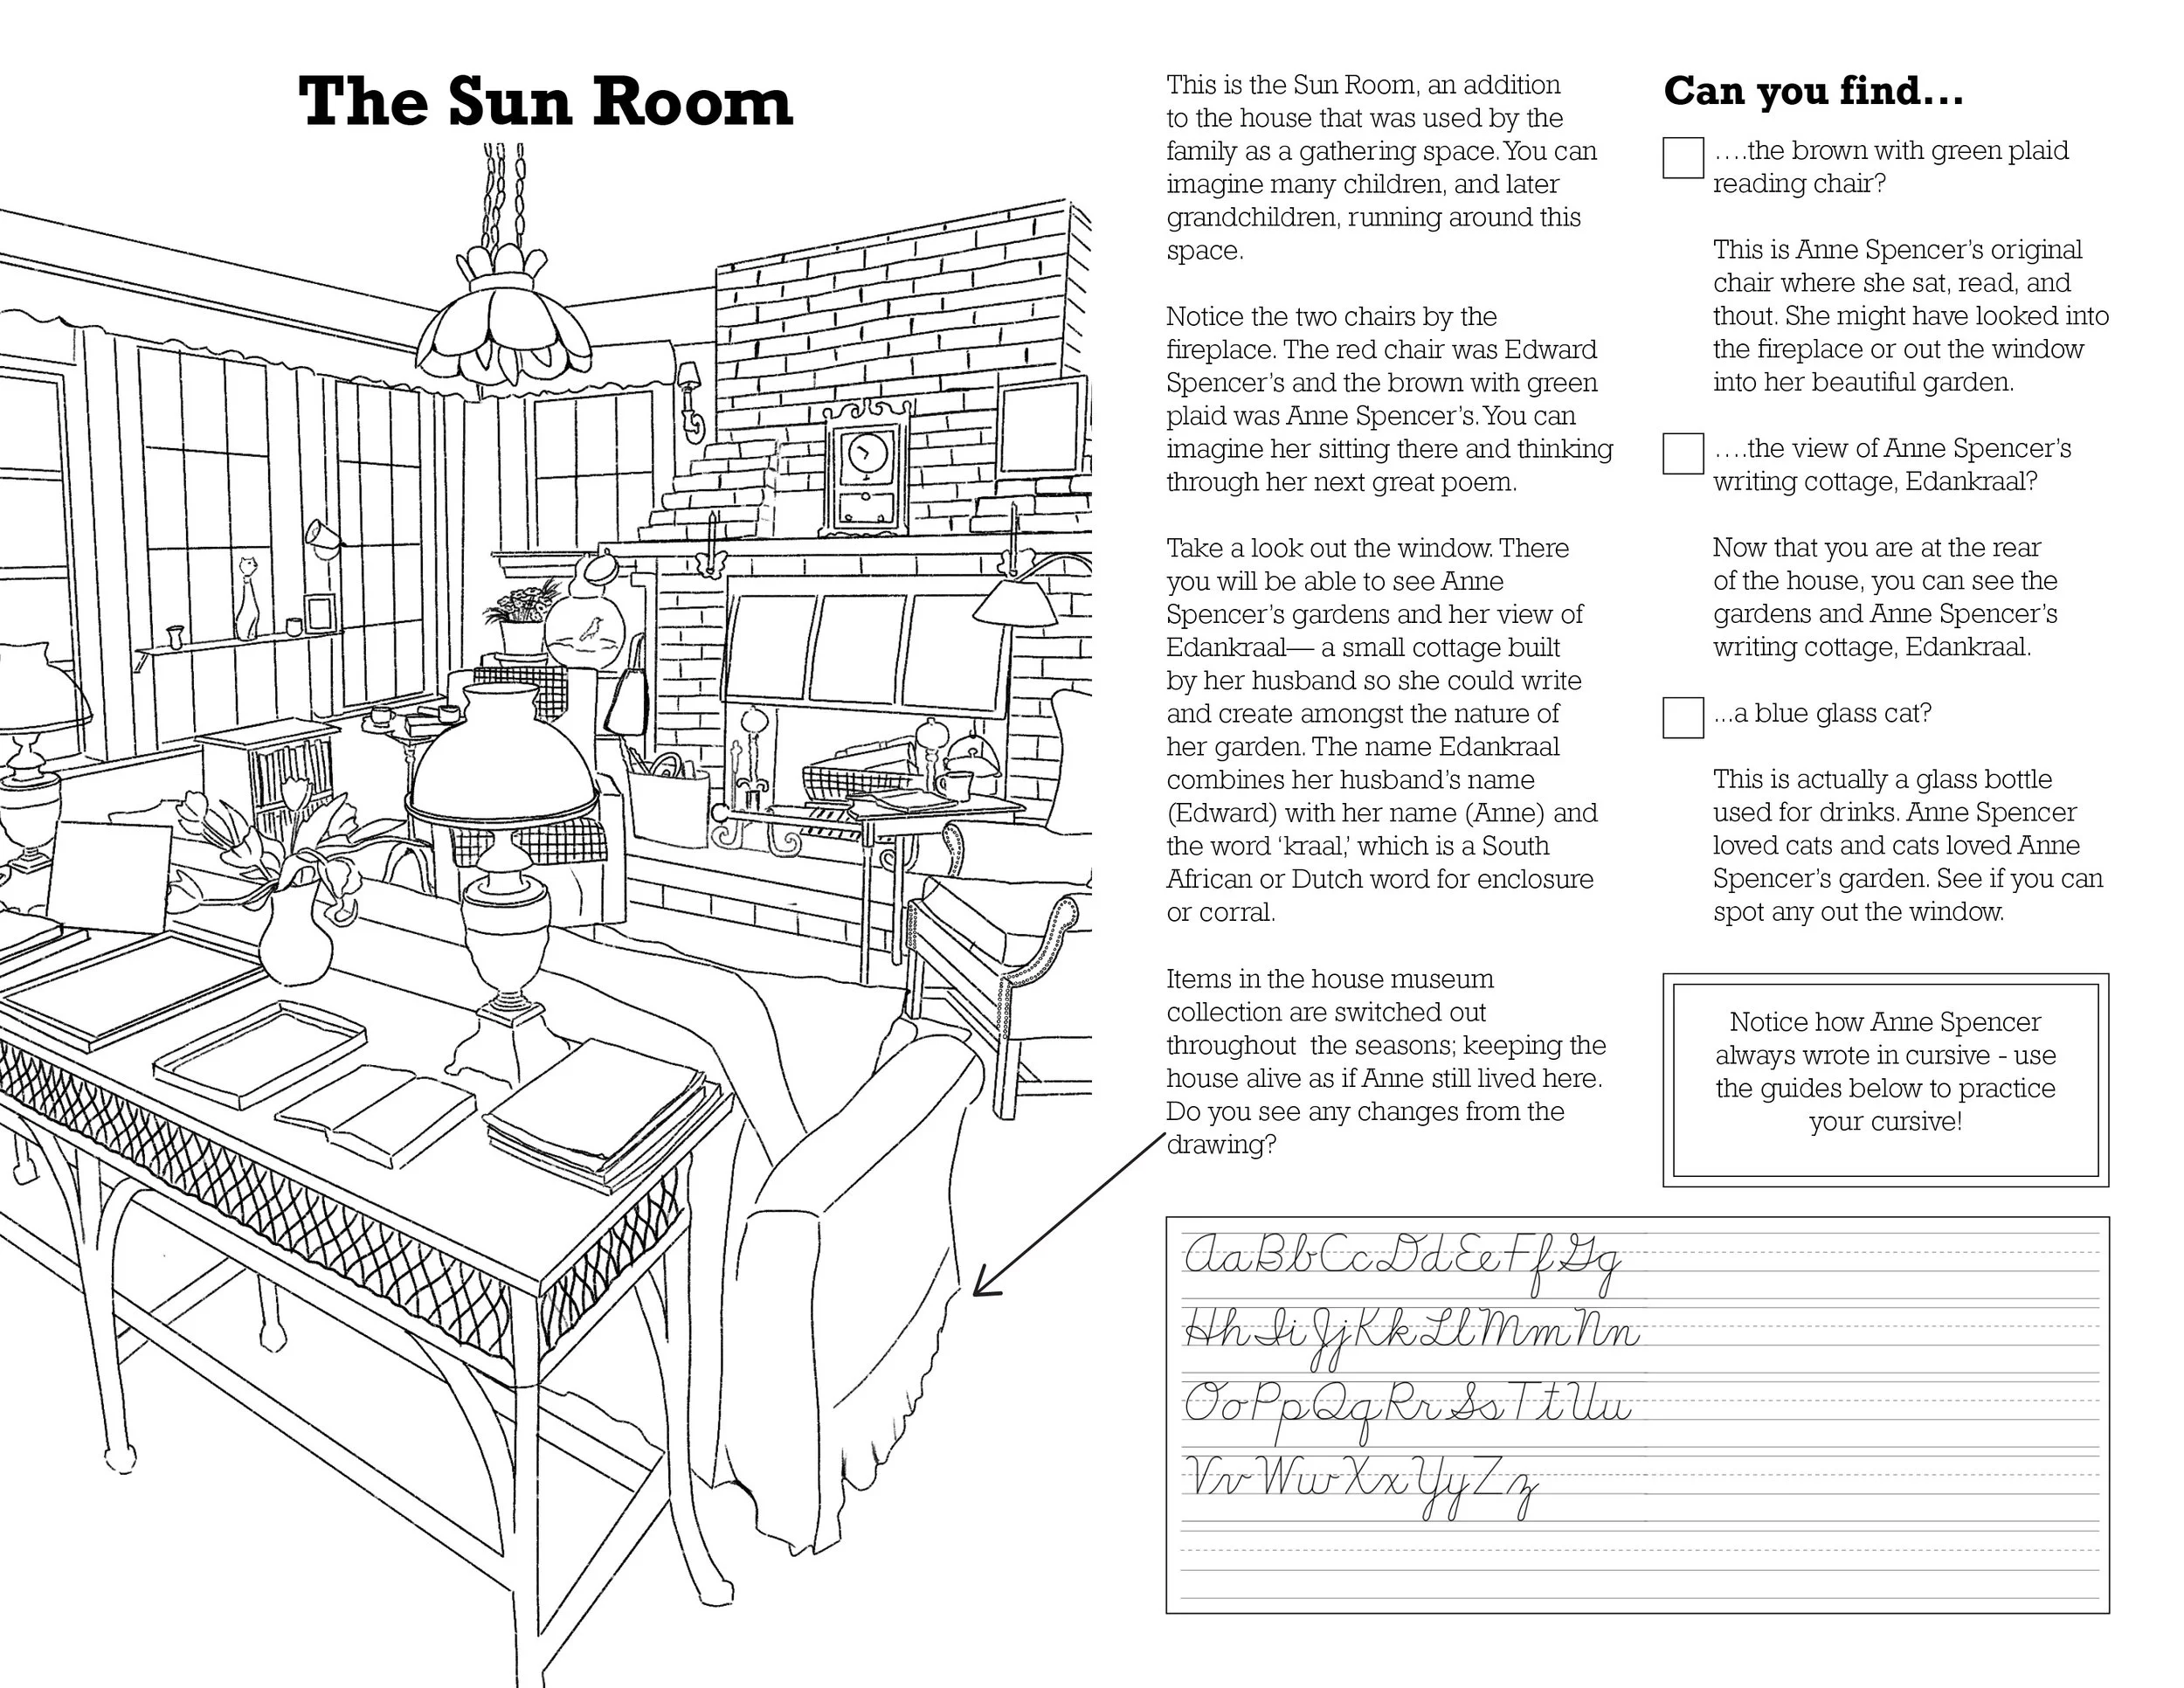 The Sun Room
This is the Sun Room, an addition
to the house that was used by the
family as a gathering space. You can
imagine many children, and later
grandchildren, running around this
space.
Notice the two chairs by the
fireplace. The red chair was Edward
Spencer’s and the brown with green
plaid was Anne Spencer’s. You can
imagine her sitting there and thinking
through her next great poem.
Take a look out the window. There
you will be able to see Anne
Spencer’s gardens and her view of
Edankraal— a small cottage built
by her husband so she could write
and create amongst the nature of
her garden. The name Edankraal
combines her husband’s name
(Edward) with her name (Anne) and
the word ‘kraal,’ which is a South
African or Dutch word for enclosure
or corral.
Items in the house museum
collection are switched out
throughout  the seasons; keeping the
house alive as if Anne still lived here.
Do you see any changes from the
drawing?
Can you find...
....the brown with green plaid
reading chair?
This is Anne Spencer’s original
chair where she sat, read, and
thout. She might have looked into
the fireplace or out the window
into her beautiful garden.
....the view of Anne Spencer’s
writing cottage, Edankraal?
Now that you are at the rear
of the house, you can see the
gardens and Anne Spencer’s
writing cottage, Edankraal.
...a blue glass cat?
This is actually a glass bottle
used for drinks. Anne Spencer
loved cats and cats loved Anne
Spencer’s garden. See if you can
spot any out the window.
Notice how Anne Spencer
always wrote in cursive - use
the guides below to practice
your cursive!
AaBbCcDdEeFfGg
HhIiJjKkLlMmNn
OoPpQqRrSsTtUu
VvWwXxYyZz